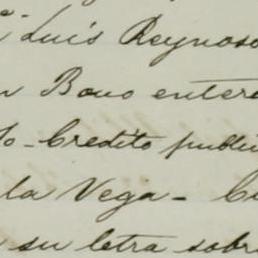 Luis Reynoso
Bono entere
Credito public
la Vega -
su letra sobre